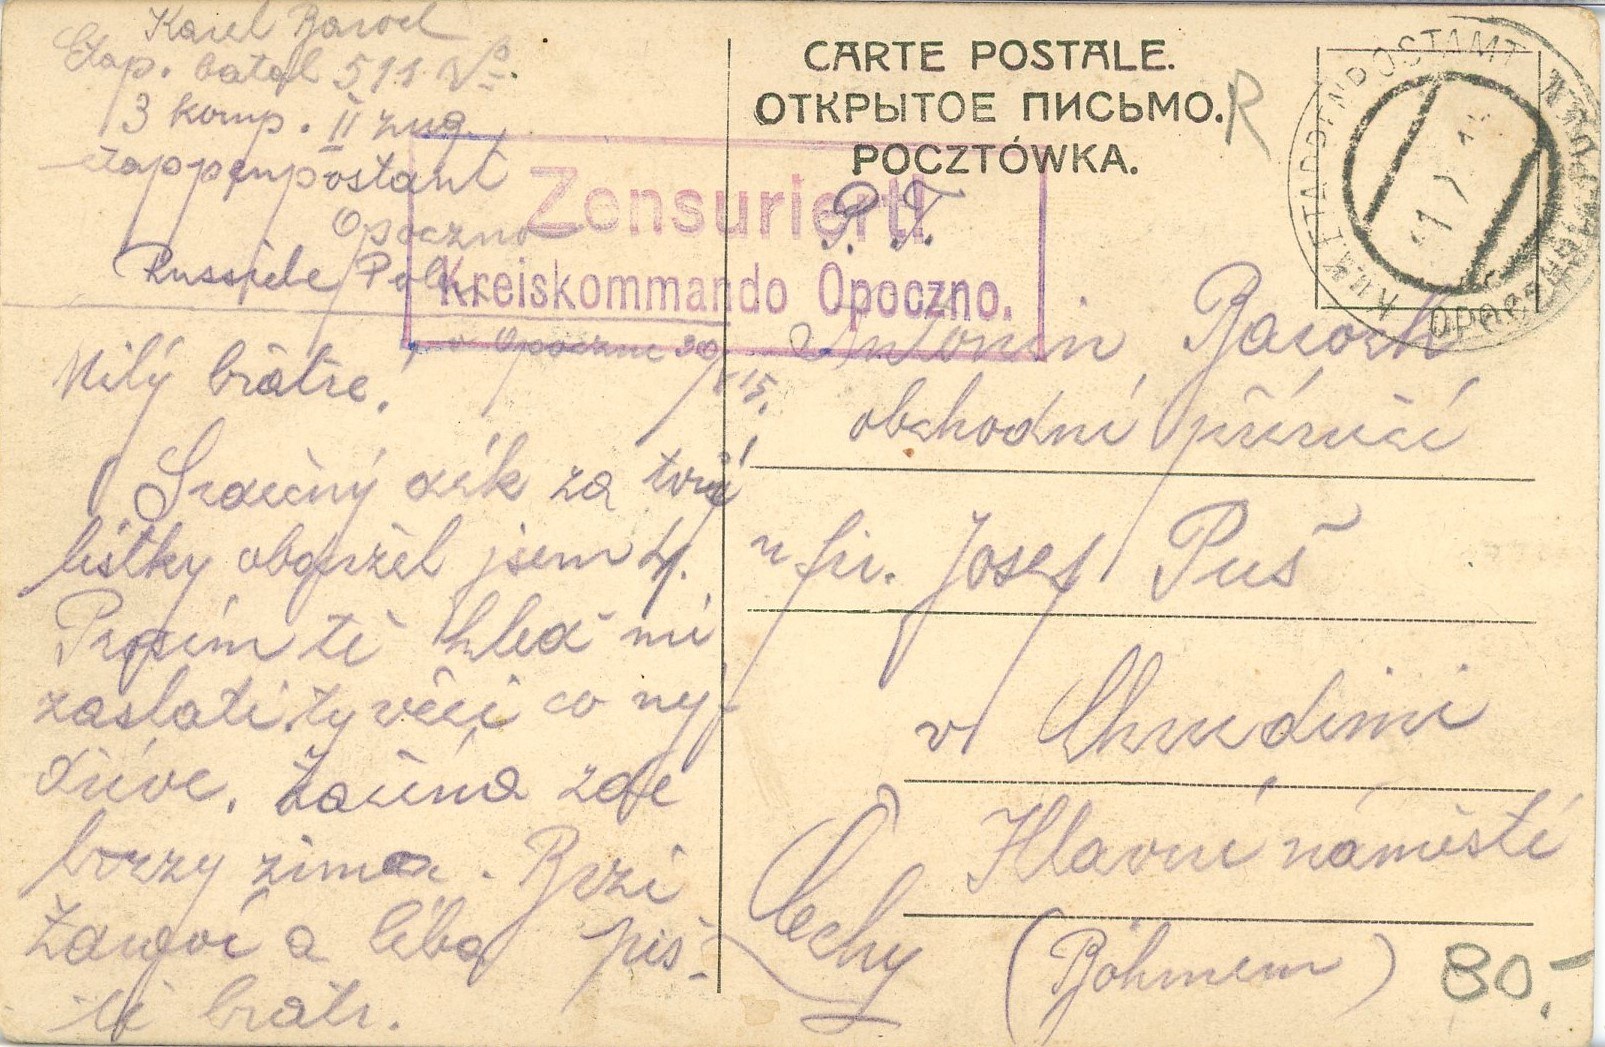 Karel Baroch
Etap. batal 511
3 komp. II zug.
etappenpostamt
Opoczno
Russische Polen
Zensuriert!
Kreiskommando Opoczno.
CARTE POSTALE.
ОТКРЫТОЕ ПИСЬМО.
POCZTÓWKA.
R
K.u.K. ETAPPENPOSTAMT
OPOCZNO
v Opoczne
15.
Milý bratře!
Srdečný dík za tvé
lístky obdržel jsem 4.
Prosím tě hleď mi
zaslati ty věci co nej
dříve. Začíná zde
brzy zima.
a líbá
bratr.
P. T.
Antonín Baroch
obchodní příručí
u fir. Josef Puš
v Chrudimi
Hlavní náměstí
Čechy (Böhmem)
80,-